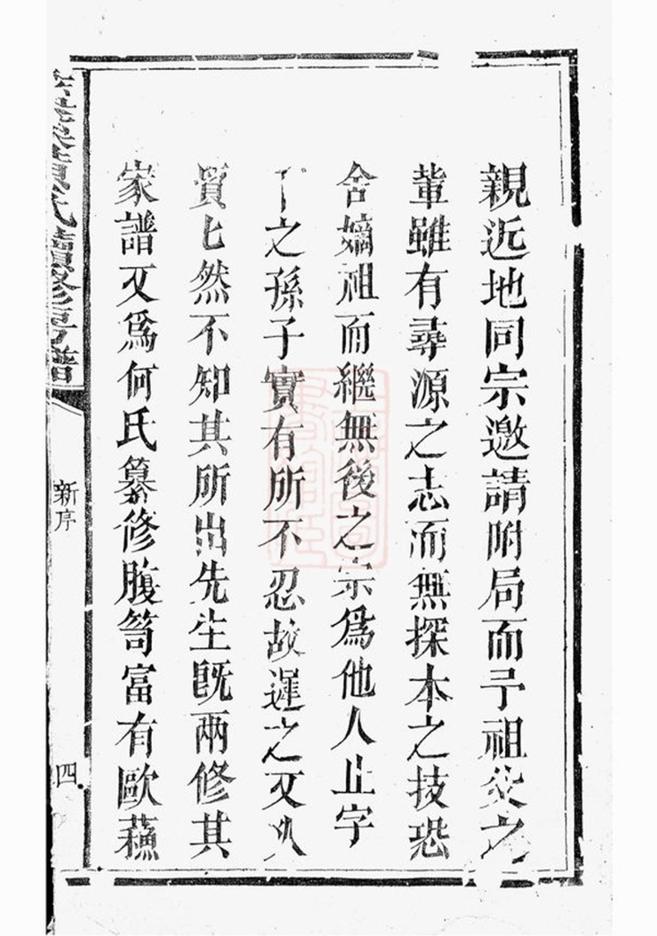 親近地同宗邀請附局而予祖父之
輩雖有尋源之志而無探本之技恐
舍嫡祖而繼無後之宗爲他人止字
之孫子實有所不忍故遲之又
貿匕然不知其所出先生旣兩修其
家譜又爲何氏纂修腹笥富有歐蘇
氏續修譜
新序
四